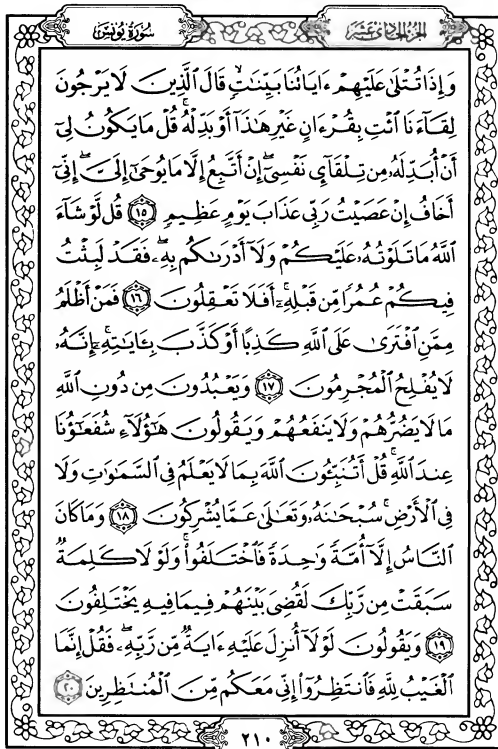 الجزء الحادي عشر
سُورَةُ يُونُس
وَإِذَا تُتْلَىٰ عَلَيْهِمْ ءَايَاتُنَا بَيِّنَٰتٍ قَالَ ٱلَّذِينَ لَا يَرْجُونَ
لِقَآءَنَا ٱئْتِ بِقُرْءَانٍ غَيْرِ هَٰذَآ أَوْ بَدِّلْهُ ۚ قُلْ مَا يَكُونُ لِىٓ
أَنْ أُبَدِّلَهُۥ مِن تِلْقَآئِ نَفْسِىٓ ۖ إِنْ أَتَّبِعُ إِلَّا مَا يُوحَىٰٓ إِلَىَّ ۖ إِنِّىٓ
أَخَافُ إِنْ عَصَيْتُ رَبِّى عَذَابَ يَوْمٍ عَظِيمٍ ١٥ قُل لَّوْ شَآءَ
ٱللَّهُ مَا تَلَوْتُهُۥ عَلَيْكُمْ وَلَآ أَدْرَىٰكُم بِهِۦ ۖ فَقَدْ لَبِثْتُ
فِيكُمْ عُمُرًا مِّن قَبْلِهِۦٓ ۚ أَفَلَا تَعْقِلُونَ ١٦ فَمَنْ أَظْلَمُ
مِمَّنِ ٱفْتَرَىٰ عَلَى ٱللَّهِ كَذِبًا أَوْ كَذَّبَ بِـَٔايَٰتِهِۦٓ ۚ إِنَّهُۥ
لَا يُفْلِحُ ٱلْمُجْرِمُونَ ١٧ وَيَعْبُدُونَ مِن دُونِ ٱللَّهِ
مَا لَا يَضُرُّهُمْ وَلَا يَنفَعُهُمْ وَيَقُولُونَ هَٰٓؤُلَآءِ شُفَعَٰٓؤُنَا
عِندَ ٱللَّهِ ۚ قُلْ أَتُنَبِّـُٔونَ ٱللَّهَ بِمَا لَا يَعْلَمُ فِى ٱلسَّمَٰوَٰتِ وَلَا
فِى ٱلْأَرْضِ ۚ سُبْحَٰنَهُۥ وَتَعَٰلَىٰ عَمَّا يُشْرِكُونَ ١٨ وَمَا كَانَ
ٱلنَّاسُ إِلَّآ أُمَّةً وَٰحِدَةً فَٱخْتَلَفُوا۟ ۚ وَلَوْلَا كَلِمَةٌ
سَبَقَتْ مِن رَّبِّكَ لَقُضِىَ بَيْنَهُمْ فِيمَا فِيهِ يَخْتَلِفُونَ
١٩ وَيَقُولُونَ لَوْلَآ أُنزِلَ عَلَيْهِ ءَايَةٌ مِّن رَّبِّهِۦ ۖ فَقُلْ إِنَّمَا
ٱلْغَيْبُ لِلَّهِ فَٱنتَظِرُوٓا۟ إِنِّى مَعَكُم مِّنَ ٱلْمُنتَظِرِينَ ٢٠
٢١٠